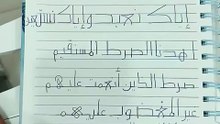 إياك نعبد وإياك نستعين
اهدنا الصرط المستقيم
صرط الذين أنعمت عليهم
غير المغضوب عليهم